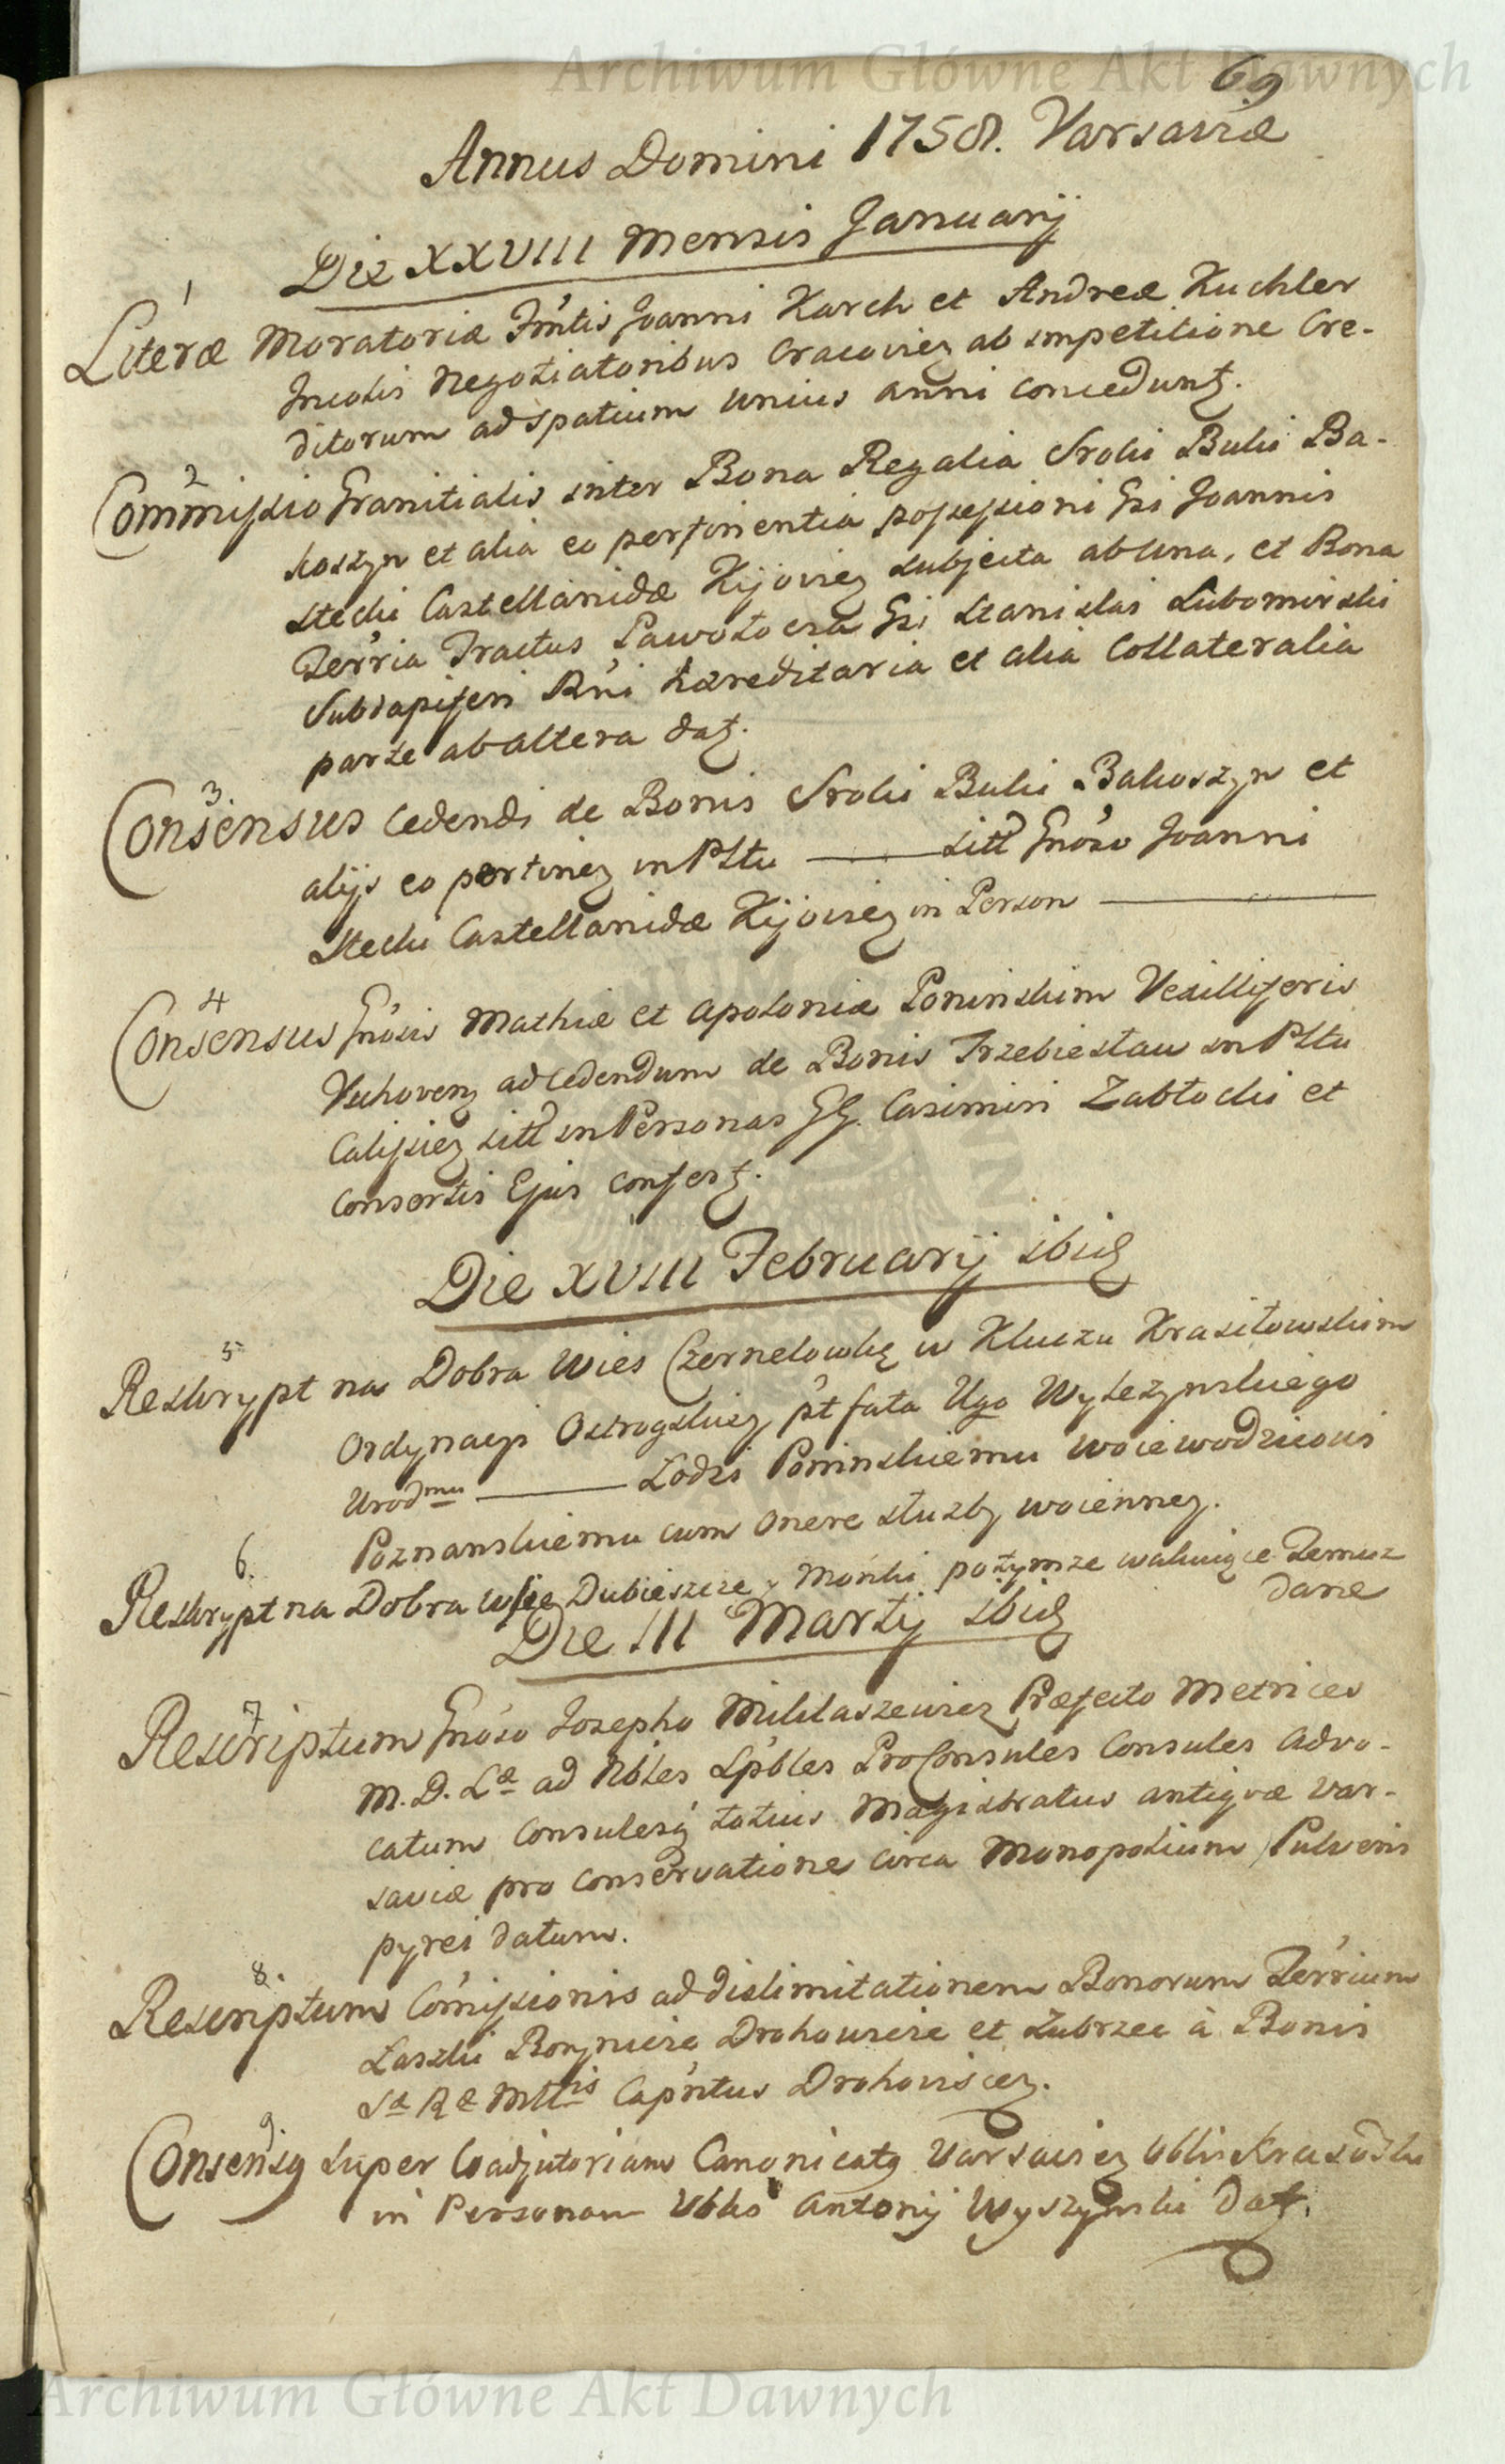 Archiwum Główne Akt Dawnych
69
Annus Domini 1758. Varsaviæ
Die XXVIII Mensis Januarij
1
Literæ Moratoriæ Fmtis Joanni Karch et Andreæ Kuchler
Incolis Negotiatoribus Cracovien ab impetitione Cre-
ditorum ad spatium unius anni concedunt.
2
Commissio Granitialis inter Bona Regalia Srolii Buki Ba-
koszyn et alia eo pertinentia possessioni Gsi Joannis
Stecki Castellanidæ Kijovien subjecta ab una, et Bona
Terria Tractus Pawołocza Gsi Stanislai Lubomirski
Subdapiferi Rni hæreditaria et alia Collateralia
parte ab altera dat.
3
Consensus cedendi de Bonis Srolii Buki Bakoszyn et
alijs eo pertinen in Pttu ——— sitt Gnoso Joanni
Stecki Castellanidæ Kijovien in Person ———
4
Consensus Gnosis Mathiæ et Apoloniæ Poninskim Vexilliferis
Vschoven ad cedendum de Bonis Trzebiesław in Pttu
Calissien sitt in Personas GG. Casimiri Zabłocki et
Consortis Ejus confert.
Die XVIII Februarij ibid
5
Reskrypt na Dobra Wies Czernelowkę w Kluczu Krasiłowskim
Ordynacyi Ostrogskiey pt fata Ugo Wyleżynskiego
Urodmu ——— Łodzi Poninskiemu Woiewodzicowi
Poznanskiemu cum onere służby woienney.
6.
Reskrypt na Dobra wsie Dubieszcze y Mońki potymze wakuiące Temuz
dane
Die III Martij ibid
7
Rescriptum Gnoso Josepho Mikłaszewicz Præfecto Metrices
M. D. Læ ad Nbles Spbles ProConsules Consules Advo-
catum Consulesq totius Magistratus antiqvæ Var-
saviæ pro conservatione circa Monopolium Pulveris
pyrei datum.
8.
Rescriptum Comissionis ad dislimitationem Bonorum Terrium
Laszki Boryniec Drohowicze et Łubrzec à Bonis
Sæ Ræ Mttis Capntus Drohovicen.
9.
Consensq super Coadjutoriam Canonicatq Varsavien Vblis Krasodl
in Personam Vblis Antonij Wyszynski Dat.
Archiwum Główne Akt Dawnych